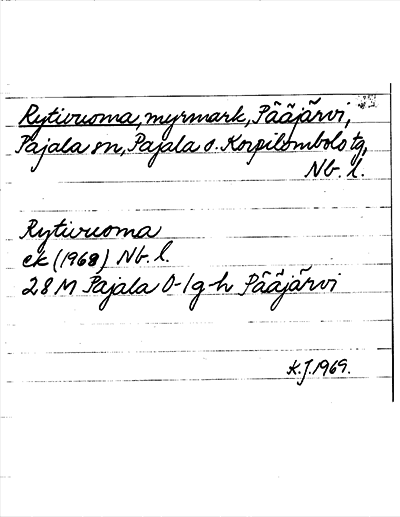 Rytivuoma, myrmark, Pääjärvi,
Pajala sn, Pajala o. Korpilombolo tg,
Nb. l.
Rytivuoma
ek (1968) Nb. l.
28 M Pajala 0-1 g-h Pääjärvi
K.J. 1969.